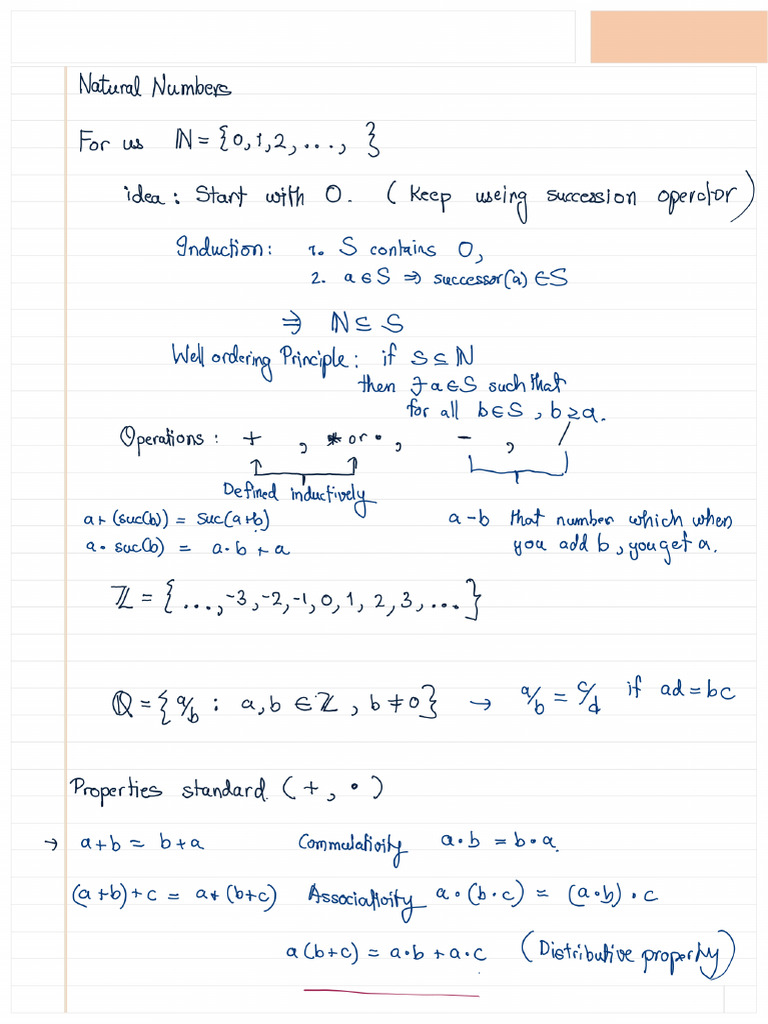 Natural Numbers
For us ℕ = {0,1,2, ..., }
idea : Start with 0. ( Keep useing succession operator)
Induction: 1. S contains 0,
2. a ∈ S ⇒ successor(a) ∈ S
⇒ ℕ ⊆ S
Well ordering Principle: if S ⊆ ℕ
then ∃ a ∈ S such that
for all b ∈ S , b ≥ a.
Operations : + , * or • , - , /
Defined inductively
a + (suc(b)) = suc(a+b)
a • suc(b) = a•b + a
a - b that number which when
you add b, you get a.
ℤ = { ..., -3, -2, -1, 0, 1, 2, 3, ... }
ℚ = { a/b : a, b ∈ ℤ , b ≠ 0 } → a/b = c/d if ad = bc
Properties standard. ( + , • )
→ a+b = b+a Commulativity a•b = b•a.
(a+b)+c = a+(b+c) Associativity a•(b•c) = (a•b)•c
a(b+c) = a•b + a•c (Distributive property)